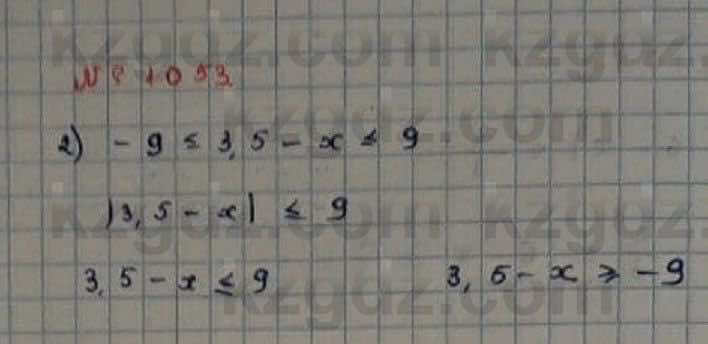 kzgdz.com kzgdz.
№ 1053
2) - 9 ≤ 3,5 - x ≤ 9
kzgdz.com
|3,5 - x| ≤ 9
kzgdz.com kzgdz.
3,5 - x ≤ 9 3,5 - x ≥ -9
kzgdz.com